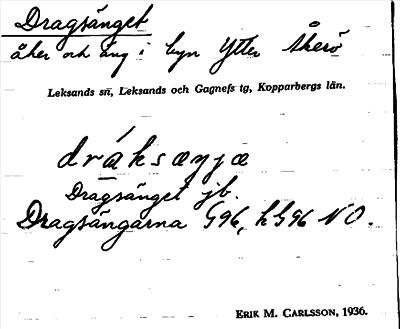 Dragsänget
åker och äng i byn Ytter Åkerö
Leksands sn, Leksands och Gagnefs tg, Kopparbergs län.
dráksæŋjæ
Dragsänget jb.
Dragsängarna G96, hS96 NO.
ERIK M. CARLSSON, 1936.